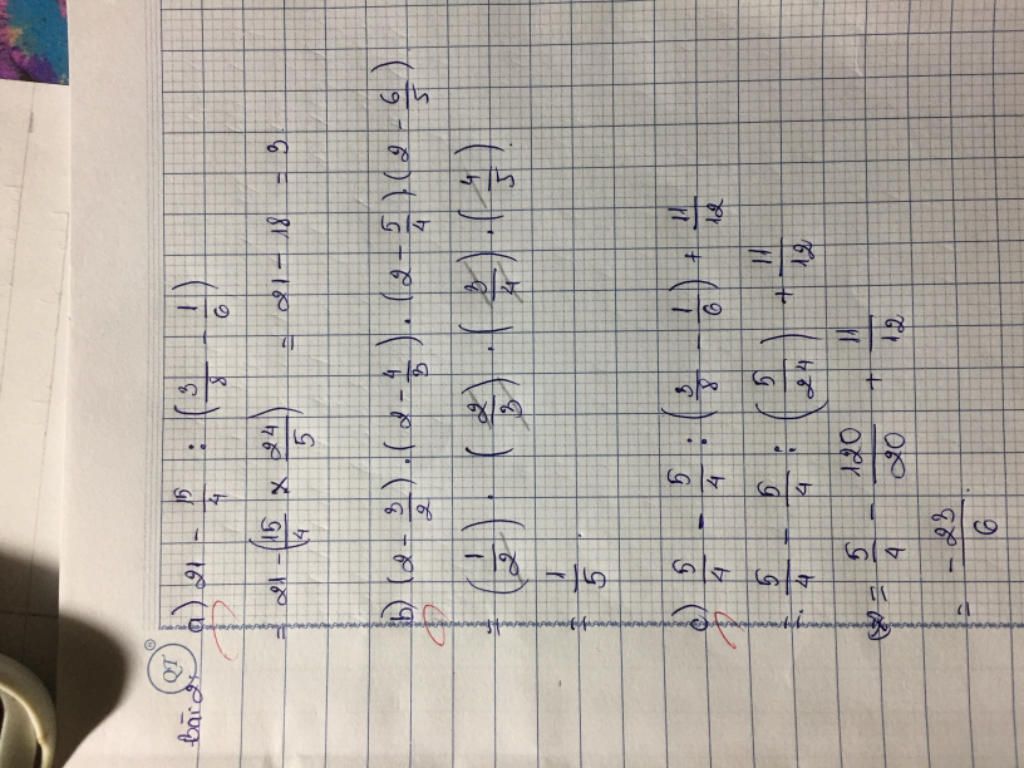 QT
Bài 2:
a) 21 - 15/4 : (3/8 - 1/6)
= 21 - (15/4 x 24/5) = 21 - 18 = 3.
b) (2 - 3/2).(2 - 4/3).(2 - 5/4).(2 - 6/5)
= (1/2) . (2/3) . (3/4) . (4/5).
= 1/5
c) 5/4 - 5/4 : (3/8 - 1/6) + 11/12
= 5/4 - 5/4 : (5/24) + 11/12
= 5/4 - 120/20 + 11/12
= -23/6.